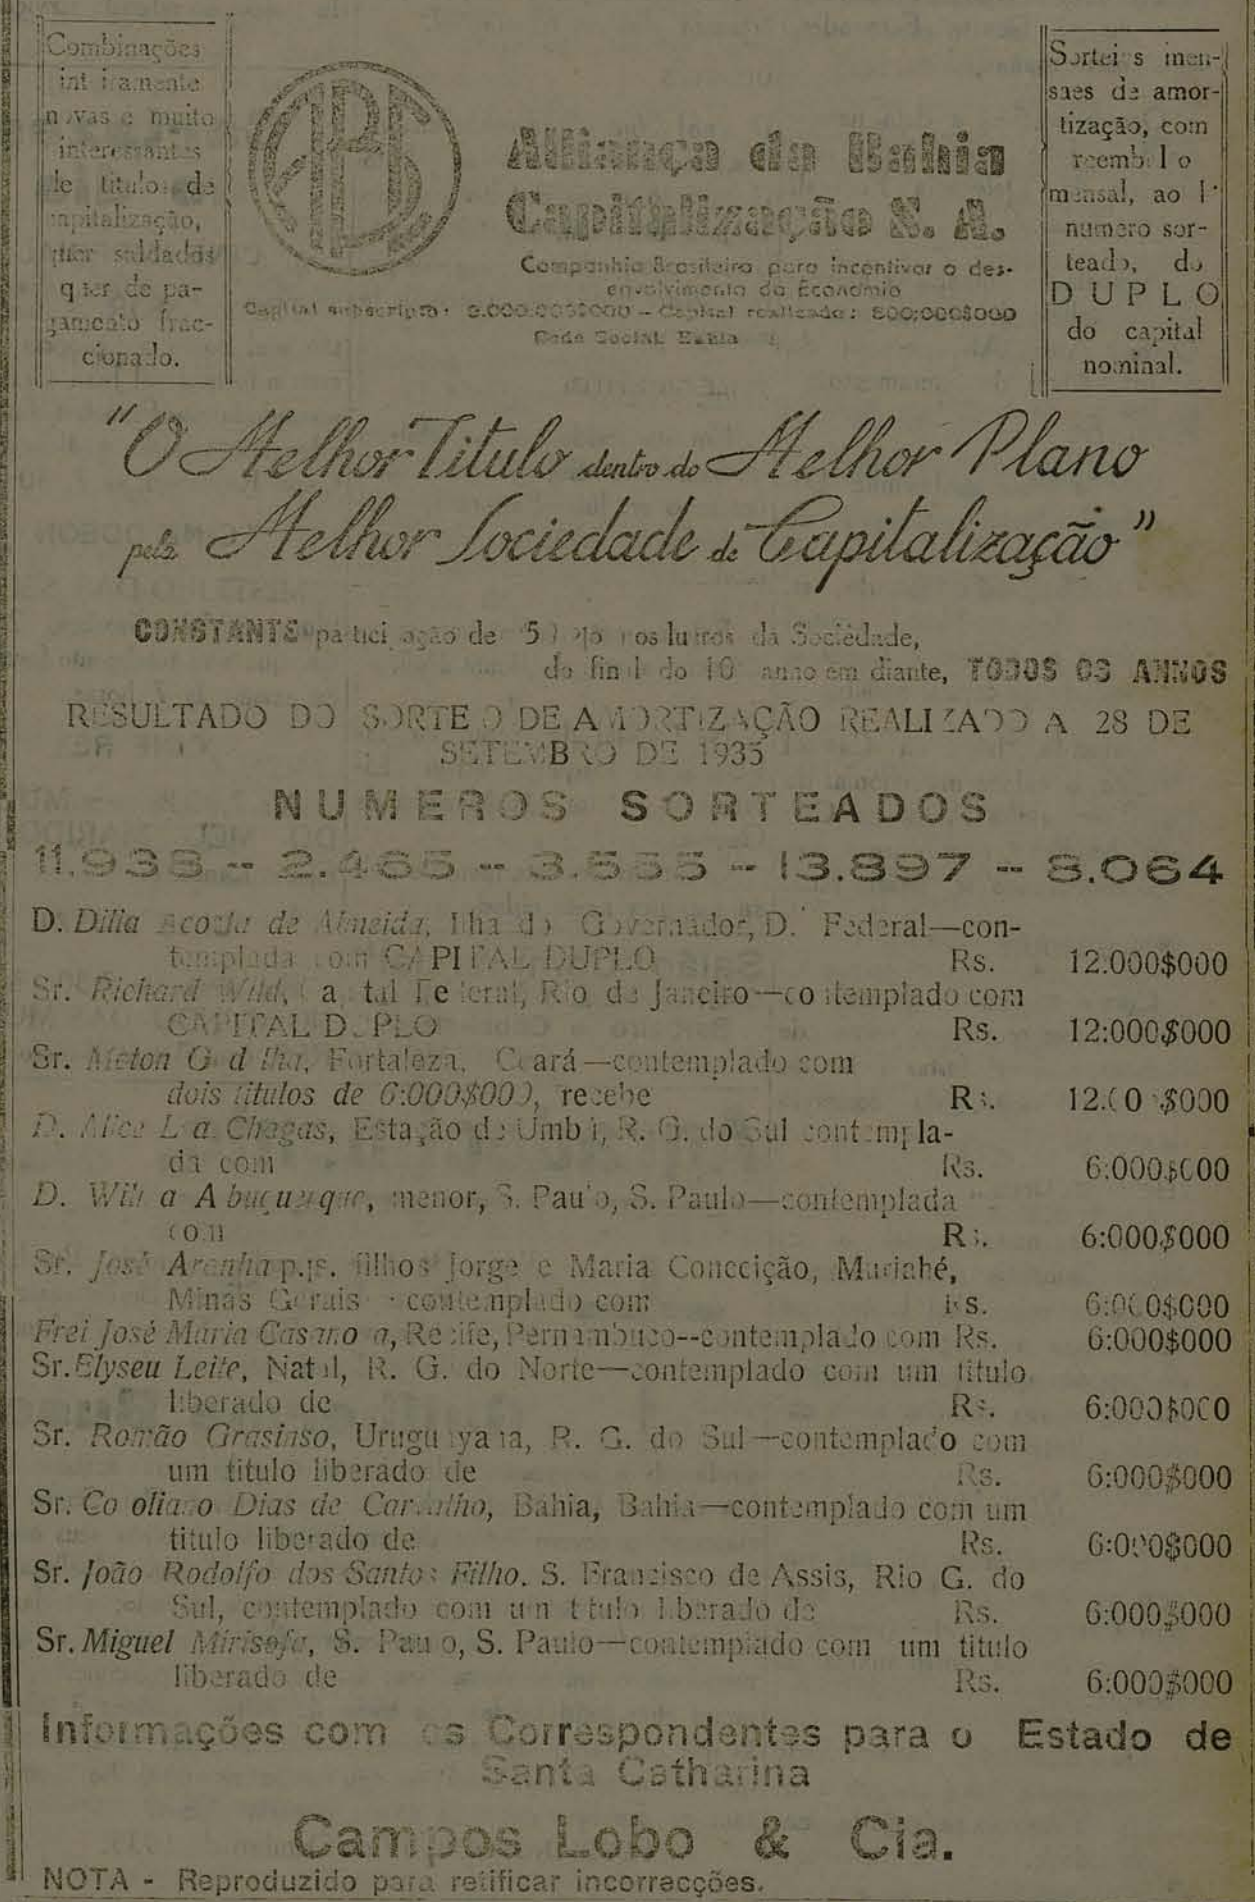 Combinações
inteiramente
novas e muito
interessantes
de titulos de
capitalização,
quer saldados
quer de pa-
gamento frac-
cionado.
Alliança da Bahia
Capitalização S. A.
Companhia Brasileira para incentivar o des-
envolvimento da Economia
Capital subscripto: 2.000:000$000 - Capital realizado: 800:000$000
Séde Social: Bahia
Sorteios men-
saes de amor-
tização, com
reembolso
mensal, ao 1º
numero sor-
teado, do
DUPLO
do capital
nominal.
"O Melhor Titulo dentro do Melhor Plano
pela Melhor Sociedade de Capitalização"
CONSTANTE participação de 50 o/o nos lucros da Sociedade,
do final do 10 anno em diante, TODOS OS ANNOS
RESULTADO DO SORTEIO DE AMORTIZAÇÃO REALIZADO A 28 DE
SETEMBRO DE 1935
NUMEROS SORTEADOS
2.465 -- 13.897 -- 8.064
D. Dilia de Almeida, Ilha do Governador, D. Federal—con-
templada com CAPITAL DUPLO Rs. 12.000$000
Sr. Richard Wild, Capital Federal, Rio de Janeiro—contemplado com
CAPITAL DUPLO Rs. 12:000$000
Sr. Fortaleza, Ceará—contemplado com
dois titulos de 6:000$000, recebe Rs. 12.000$000
D. Alice Chagas, Estação de R. G. do Sul contempla-
da com Rs. 6:000$000
D. menor, S. Paulo, S. Paulo—contemplada
com Rs. 6:000$000
Sr. José Aranha p.s. filhos Jorge e Maria Conceição, Muriahé,
Minas Geraes - contemplado com Rs. 6:000$000
Frei José Maria Casanova, Recife, Pernambuco--contemplado com Rs. 6:000$000
Sr. Elyseu Leite, Natal, R. G. do Norte—contemplado com um titulo
liberado de Rs. 6:000$000
Sr. Romão Uruguayana, R. G. do Sul—contemplado com
um titulo liberado de Rs. 6:000$000
Sr. Dias de Carvalho, Bahia, Bahia—contemplado com um
titulo liberado de Rs. 6:000$000
Sr. João Rodolfo dos Santos Filho, S. Francisco de Assis, Rio G. do
Sul, contemplado com um titulo liberado de Rs. 6:000$000
Sr. Miguel S. Paulo, S. Paulo—contemplado com um titulo
liberado de Rs. 6:000$000
Informações com os Correspondentes para o Estado de
Santa Catharina
Campos Lobo & Cia.
NOTA - Reproduzido para retificar incorrecções.